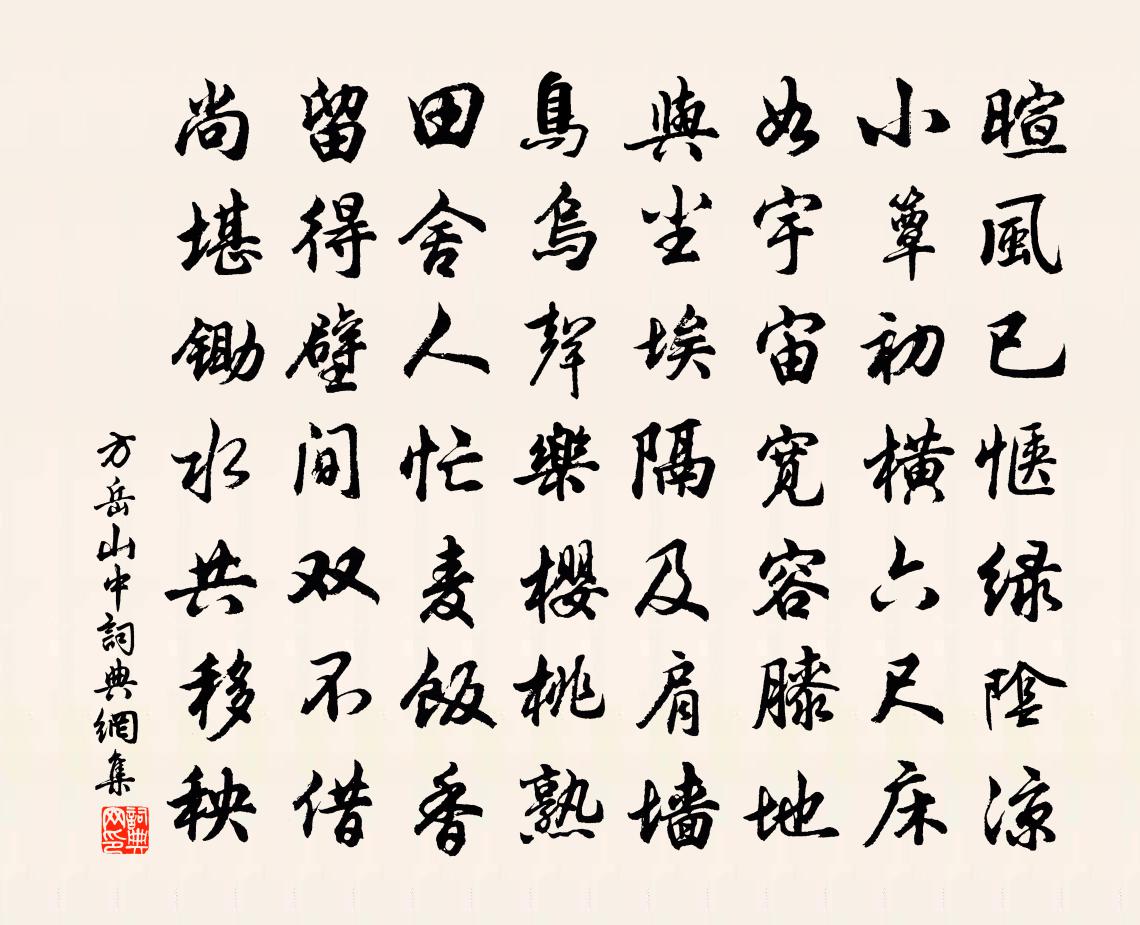 暄風已惬緑陰涼
小簟初横六尺床
如宇宙宽容膝地
與尘埃隔及肩墙
鳥烏聲樂櫻桃熟
田舍人忙麦飯香
留得壁间双不借
尚堪鋤水共移秧
方岳山中詞典網集
詞典网印